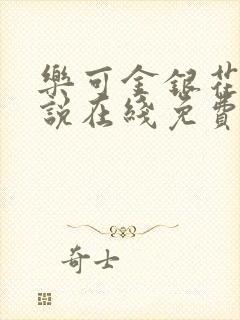 樂可金銀花
說在綫免費
奇士